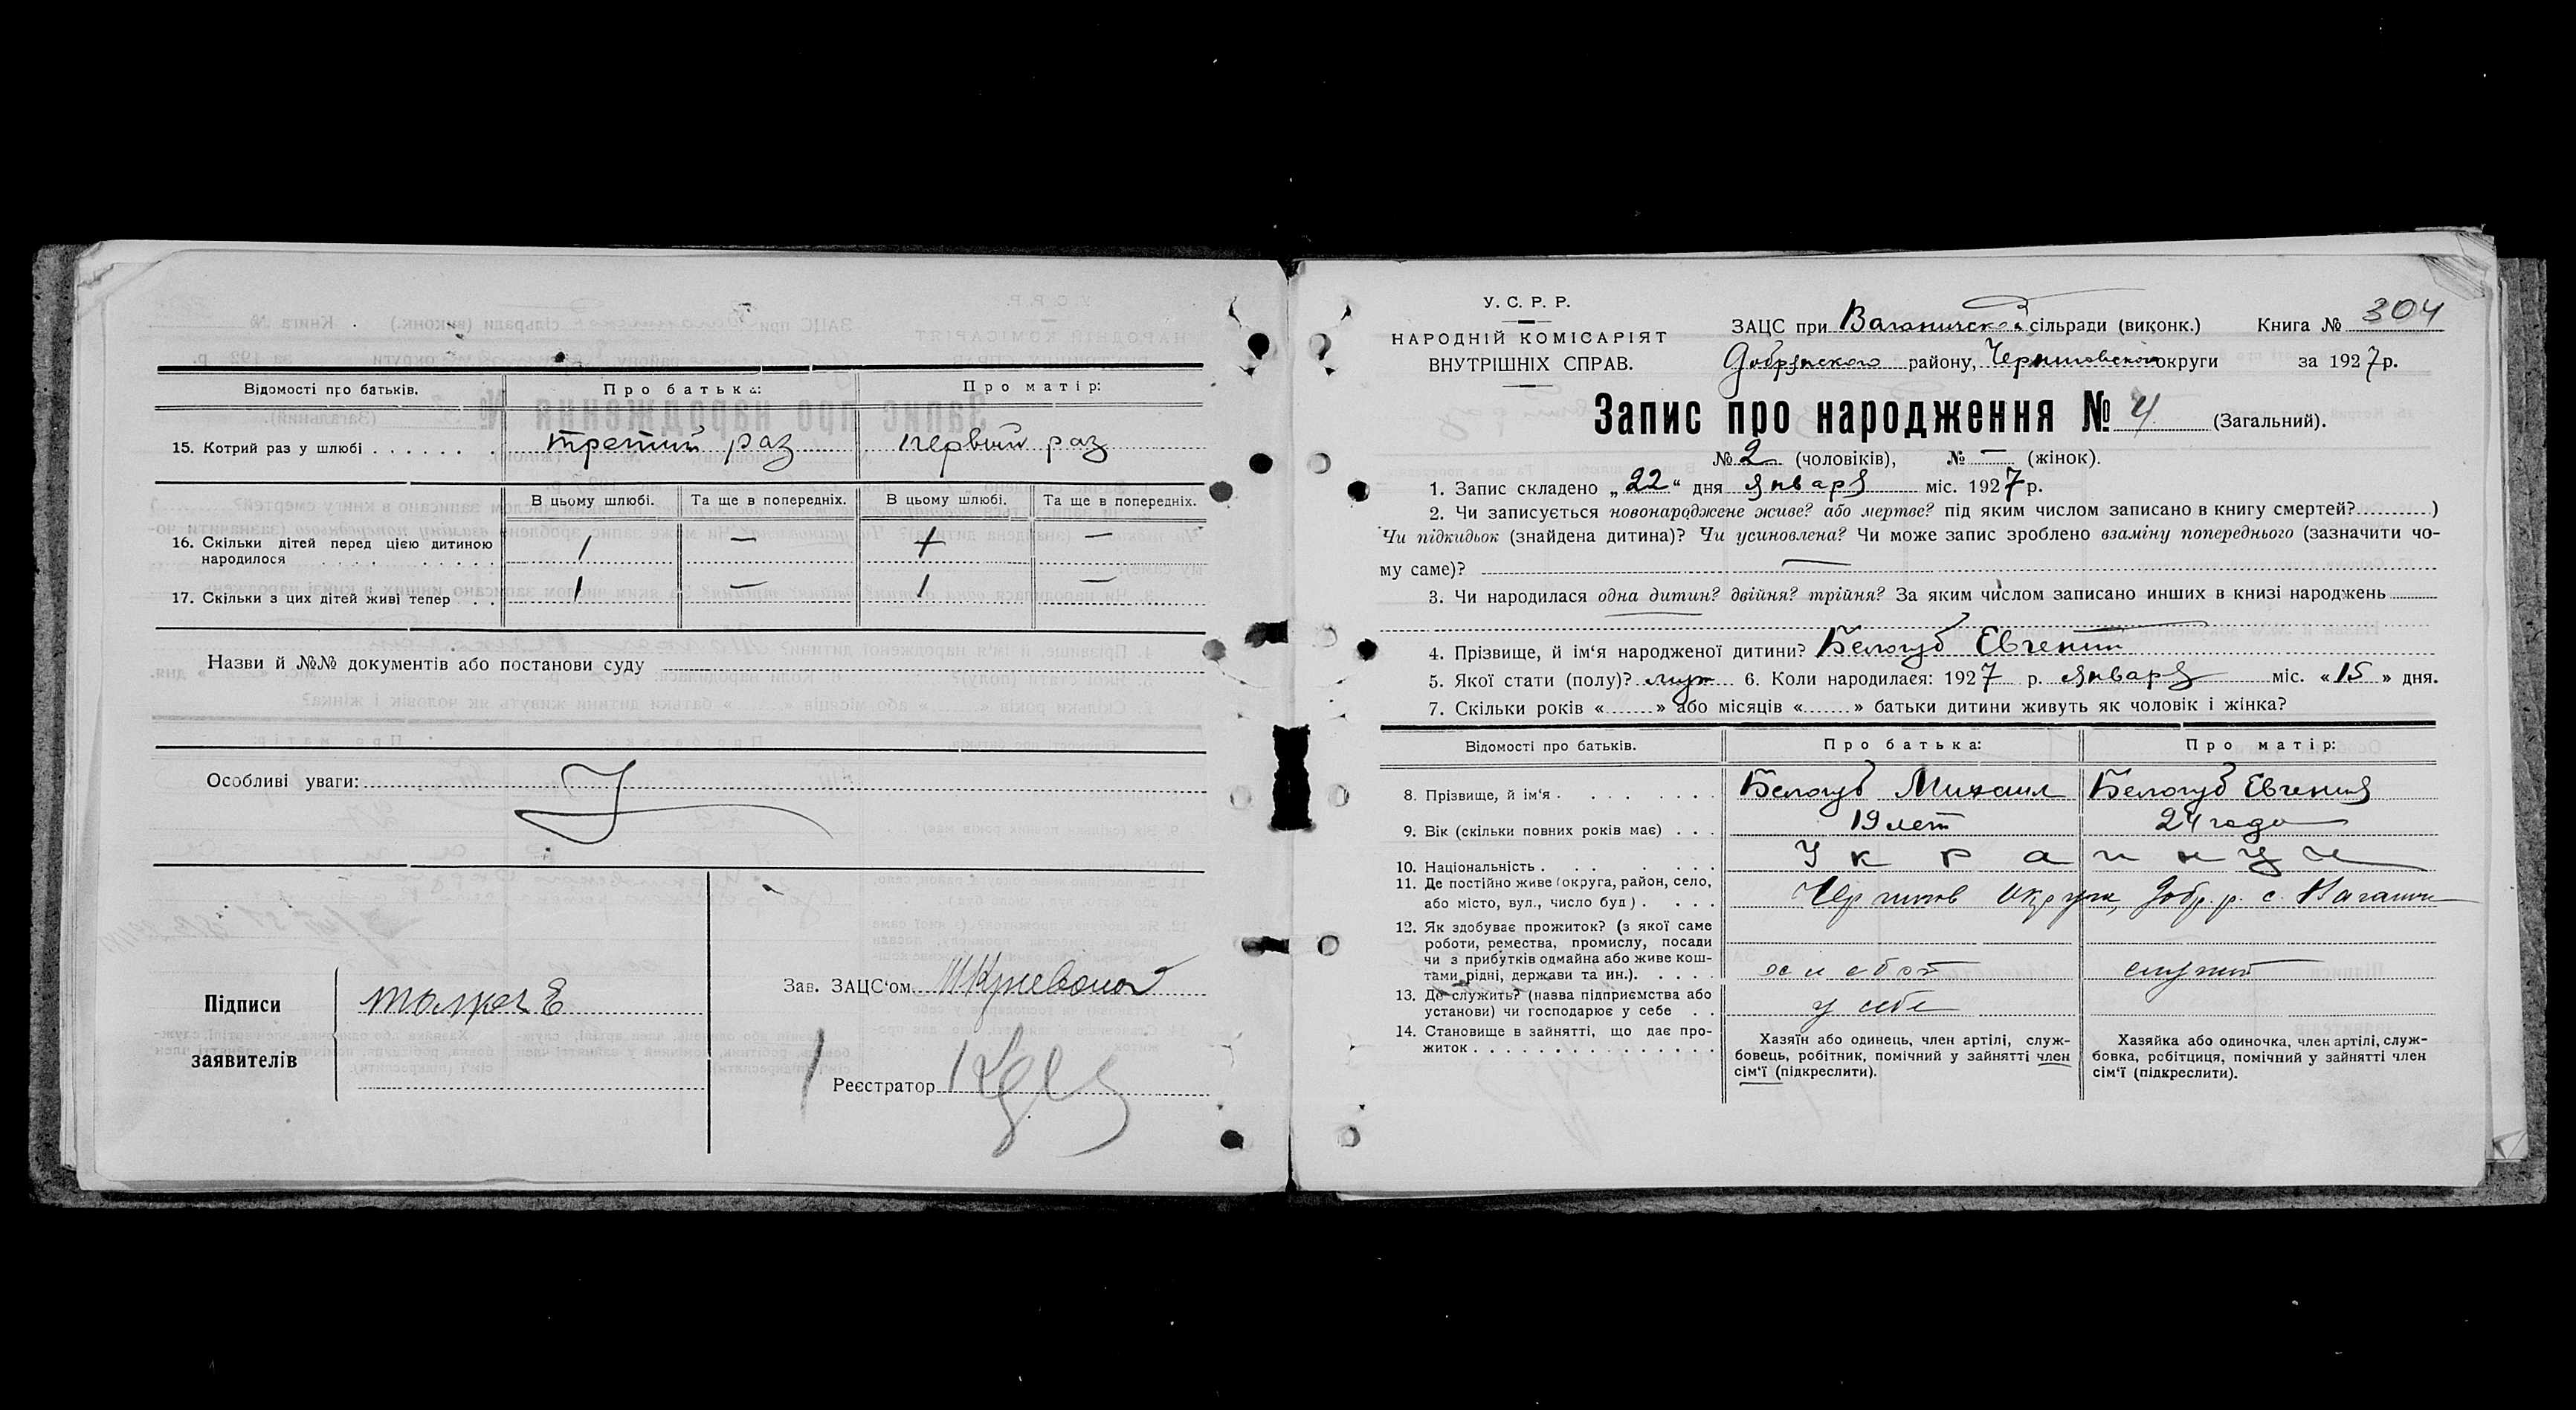 Відомості про батьків. Про батька: Про матір:
15. Котрий раз у шлюбі третий раз первый раз
В цьому шлюбі. Та ще в попередніх. В цьому шлюбі. Та ще в попередніх.
16. Скільки дітей перед цією дитиною
народилося 1 — 1 —
17. Скільки з цих дітей живі тепер 1 — 1 —
Назви й №№ документів або постанови суду
Особливі уваги:
Підписи
заявителів
Зав. ЗАЦС'ом
Реєстратор
У. С. Р. Р.
НАРОДНІЙ КОМІСАРІЯТ
ВНУТРІШНІХ СПРАВ.
ЗАЦС при сільради (виконк.) Книга № 304
Добрянского району, Черниговской округи за 1927 р.
Запис про народження № 4 (Загальний).
№ 2 (чоловіків), № — (жінок).
1. Запис складено „22“ дня Января міс. 1927 р.
2. Чи записується новонароджене живе? або мертве? під яким числом записано в книгу смертей? )
Чи підкидьок (знайдена дитина)? Чи усиновлена? Чи може запис зроблено взаміну попереднього (зазначити чо-
му саме)? —
3. Чи народилася одна дитин? двійня? трійня? За яким числом записано инших в книзі народжень
4. Прізвище, й ім'я народженої дитини? Белогуб Евгений
5. Якої стати (полу)? муж 6. Коли народилася: 1927 р. Января міс. «15» дня.
7. Скільки років « » або місяців « » батьки дитини живуть як чоловік і жінка?
Відомості про батьків. Про батька: Про матір:
8. Прізвище, й ім'я Белогуб Михаил Белогуб Евгения
9. Вік (скільки повних років має) 19 лет 24 года
10. Національність Украинцы
11. Де постійно живе (округа, район, село,
або місто, вул., число буд) округи, Добр. р. с.
12. Як здобуває прожиток? (з якої саме
роботи, ремества, промислу, посади
чи з прибутків одмайна або живе кош-
тами рідні, держави та ин.). служит
13. Де служить? (назва підприємства або
установи) чи господарює у себе у себе
14. Становище в зайнятті, що дає про-
житок
Хазяїн або одинець, член артілі, служ-
бовець, робітник, помічний у зайнятті член
сім'ї (підкреслити).
Хазяйка або одиночка, член артілі, служ-
бовка, робітциця, помічний у зайнятті член
сім'ї (підкреслити).